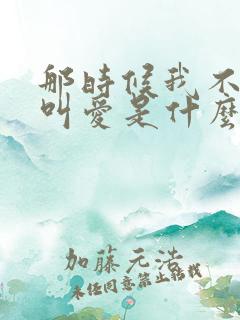 那時候我不
叫愛是什麼
加藤元浩
未经同意禁止转载